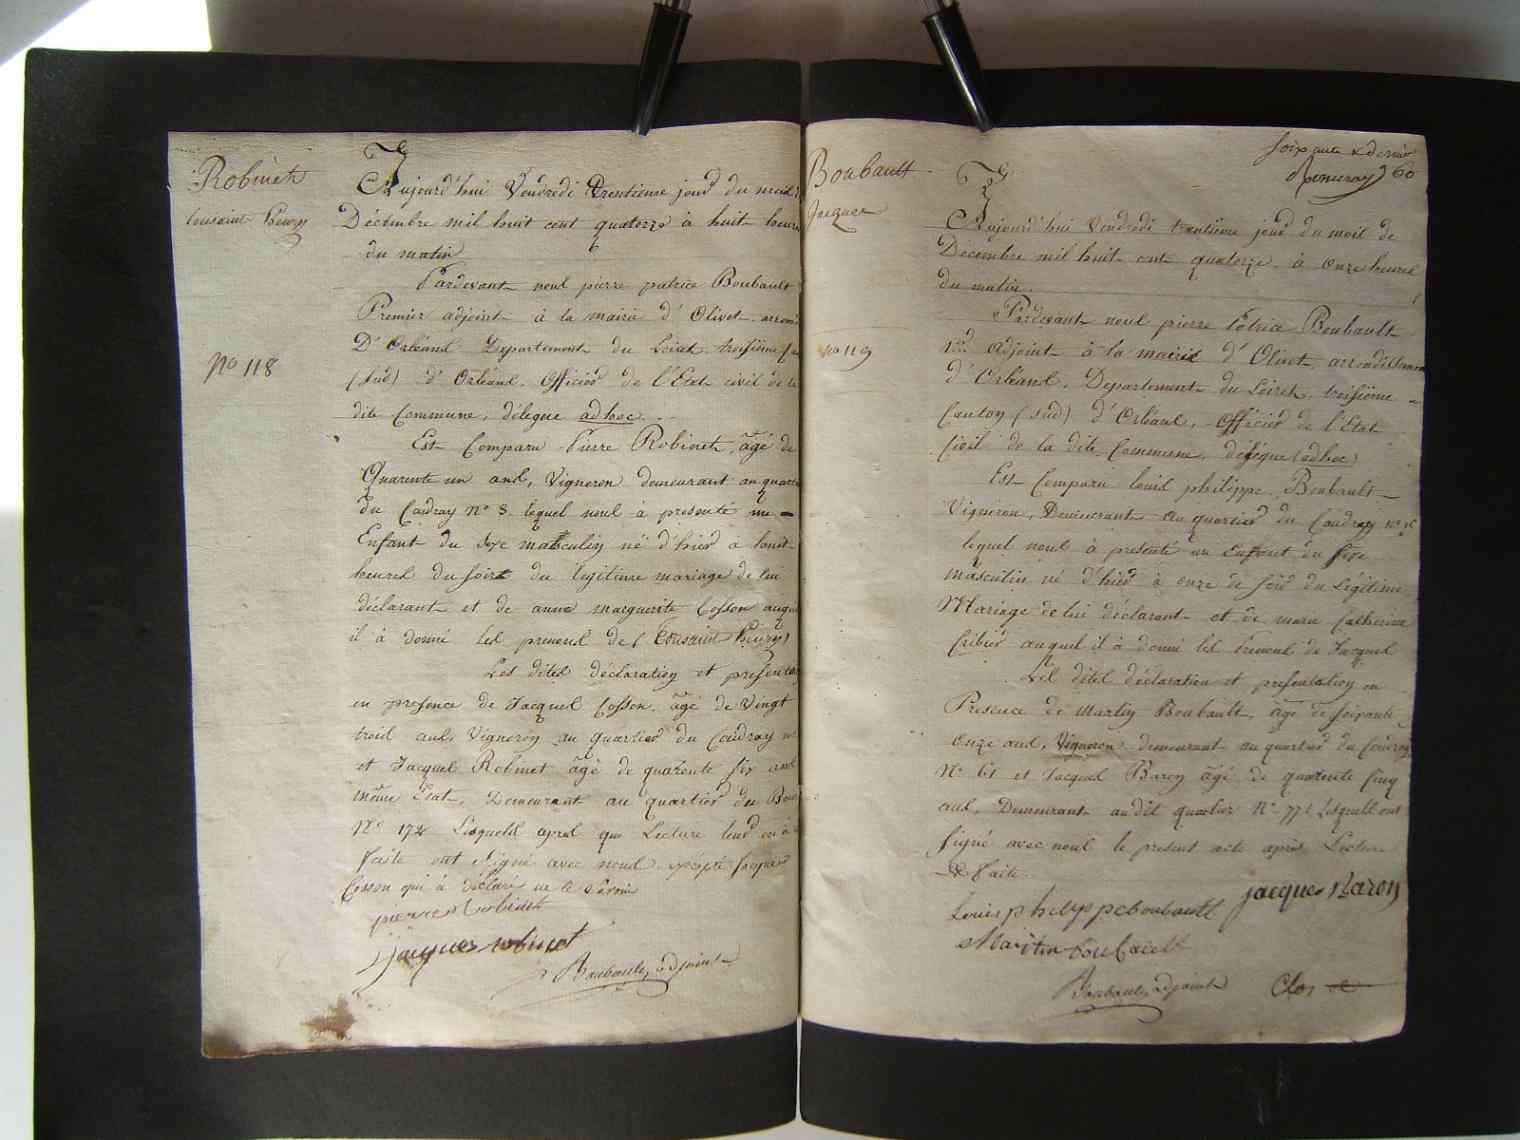 Robineth
tousaint Henry
No 118
Aujourd'hui Vendredi trentieme jour du mois
Décembre mil huit cent quatorze à huit heures
du matin
Pardevant nous pierre patrice Boubault
Premier adjoint à la mairie d'Olivet
D'Orléans Departement du Loiret troisième
(sud) d'Orléans. Officier de l'Etat civil de la
dite Commune, délégué ad hoc.
Est Comparu Pierre Robineth, âgé de
Quarente un ans, Vigneron demeurant au quartier
du Caudray n° 8 lequel nous à presenté un
Enfant du sexe masculin né d'hier à huit
heures du soir du legitime mariage de lui
déclarant et de anne marguerite Cosson auquel
il à donné les prenoms de (Tousaint Henry)
Les dites déclaration et presentation
en presence de Jacques Cosson âgé de Vingt
trois ans, Vigneron au quartier du Caudray n°
et Jacques Robinet âgé de quarente six ans
même Etat, Demeurant au quartier du
N° 172 Lesquels après que Lecture leur en à
faite ont signé avec nous excepté Jacques
Cosson qui à déclaré ne le savoir
pierre robineth
jacques robinet
Boubault, adjoint
Boubault
Jacques
no 119
soixante & dernier
60
Aujourd'hui Vendredi trentieme jour du mois de
Décembre mil huit cent quatorze à onze heures
du matin.
Pardevant nous pierre Patrice Boubault
1er Adjoint à la mairie d'Olivet, arrondissement
d'Orléans, Departement du Loiret, troisième
Canton (sud) d'Orléans, Officier de l'Etat
Civil de la dite Commune, délégué (ad hoc)
Est Comparu louis philippe Boubault
Vigneron, Demeurant au quartier du Caudray n°
lequel nous à presenté un Enfant du sexe
masculin né d'hier à onze de soir du Légitime
Mariage de lui déclarant et de marie Catherine
Cribier auquel il à donné les Prenoms de Jacques
Les dites déclaration et presentation en
Presence de Martin Boubault, âgé de soixante
onze ans, Vigneron demeurant au quartier du Caudray
N° 61 et Jacques Baron âgé de quarente sinq
ans, Demeurant audit quartier N° 77 Lesquels ont
signé avec nous le present acte après Lecture
faite.
jacques Baron
Louis phelyppe boubault
Martin boubault
Boubault, adjoint
Clos